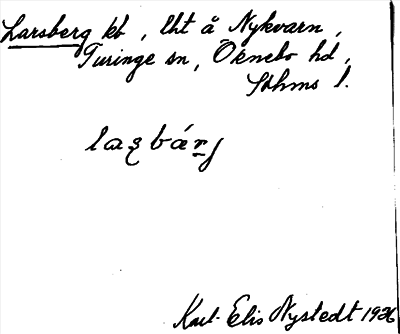 Larsberg kb, lht å Nykvarn,
Turinge sn, Öknebo hd,
Sthms l.
Karl-Elis Nystedt 1936